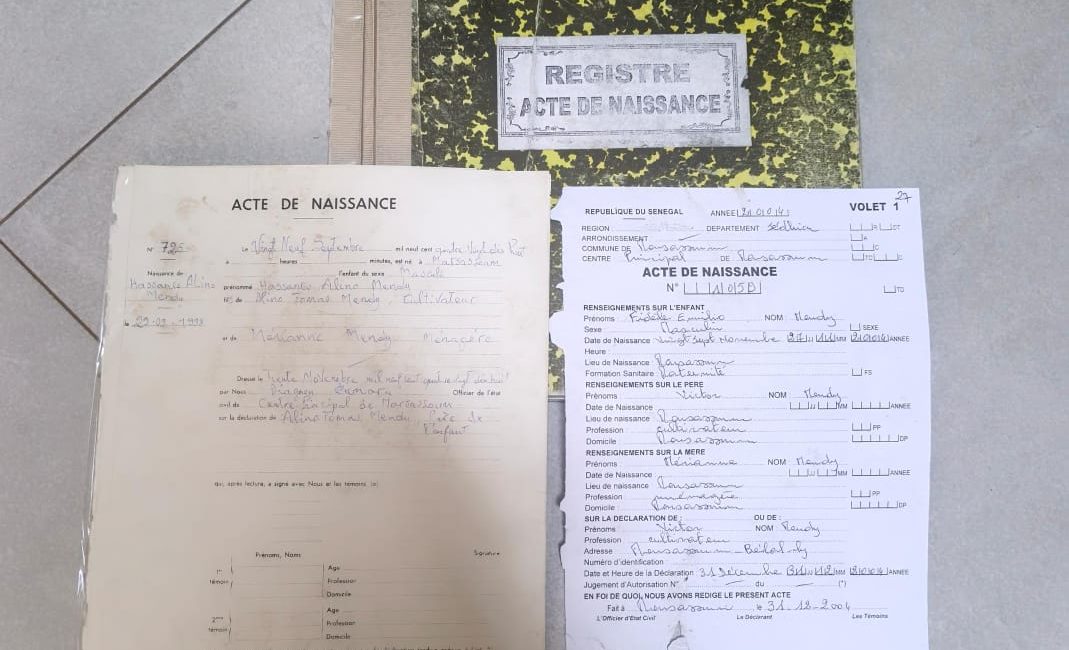 REGISTRE
ACTE DE NAISSANCE
ACTE DE NAISSANCE
N° 725
Le Vingt Neuf Septembre mil neuf cent
à heures minutes, est né à Marsassoum
Naissance de l'enfant du sexe Masculin
Hassante Alino Mendy
prénommé Hassante Alino Mendy
de Alino Tomne Mendy, Cultivateur
le 29-09-1998
et de Marianne Mendy Ménagère
Dressé le trente Novembre mil neuf cent quatre vingt dix huit
par Nous Officier de l'état
civil du Centre Principal de Marsassoum
sur la déclaration de Alino Tomne Mendy, Père de
l'enfant
Qui, après lecture, a signé avec Nous et les témoins (a)
Prénoms, Noms Signature
1er témoin
Age
Profession
Domicile
2ème témoin
Age
Profession
Domicile
27
REPUBLIQUE DU SENEGAL ANNEE 2004 VOLET 1
REGION DEPARTEMENT Sédhiou
ARRONDISSEMENT
COMMUNE DE Marsassoum
CENTRE Principal DE Marsassoum
ACTE DE NAISSANCE
N° 105 TD
RENSEIGNEMENTS SUR L'ENFANT
Prénoms : Fidèle Emilio NOM : Mendy
Sexe Masculin SEXE
Date de Naissance : Vingt sept Novembre 27 11 MM 2004 ANNEE
Heure :
Lieu de Naissance : Marsassoum
Formation Sanitaire : Maternité FS
RENSEIGNEMENTS SUR LE PERE
Prénoms : Victor NOM : Mendy
Date de Naissance : MM ANNEE
Lieu de naissance : Marsassoum
Profession : cultivateur PP
Domicile : Marsassoum DP
RENSEIGNEMENTS SUR LA MERE
Prénoms : Marianne NOM : Mendy
Date de Naissance : MM ANNEE
Lieu de naissance : Marsassoum
Profession : ménagère PP
Domicile : Marsassoum DP
SUR LA DECLARATION DE : OU DE :
Prénoms : Victor NOM Mendy
Profession : cultivateur
Adresse : Marsassoum
Numéro d'identification :
Date et Heure de la Déclaration : 31 Décembre 31 12 MM 2004 ANNEE
Jugement d'Autorisation N° du (*)
EN FOI DE QUOI, NOUS AVONS REDIGE LE PRESENT ACTE
Fait à Marsassoum le 31-12-2004
L'Officier d'Etat Civil Le Déclarant Les Témoins